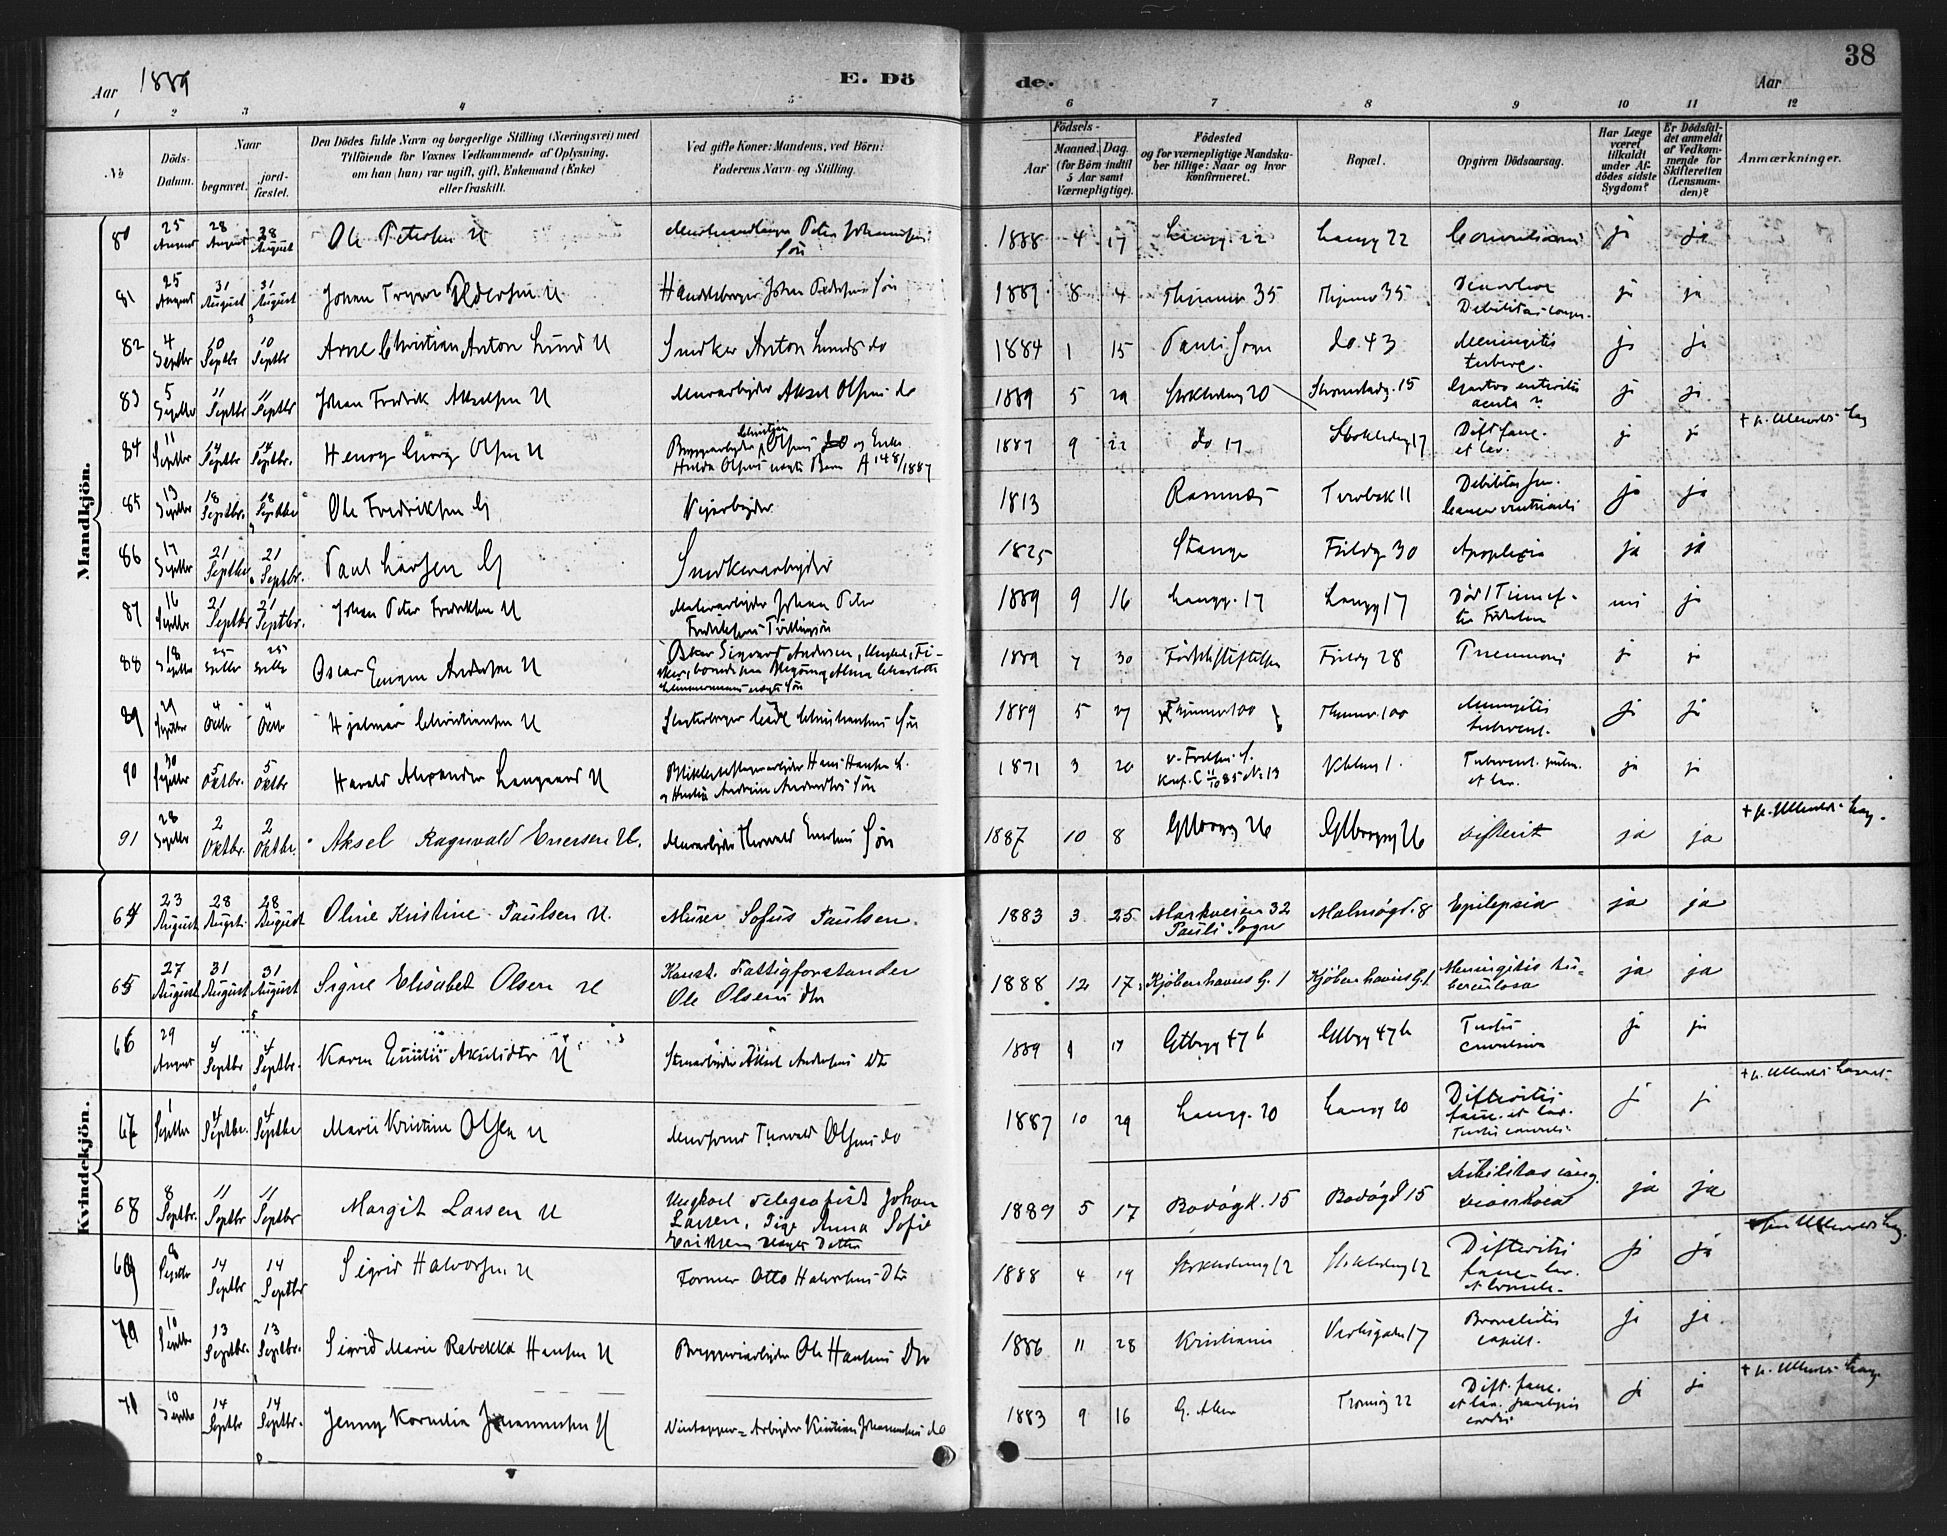 38
Aar 1889
E. Dö
de.
Aar
1 2 3 4 5 6 7 8 9 10 11 12
No
Döds-Datum.
Naar
begravet.
jord-fæstet.
Den Dödes fulde Navn og borgerlige Stilling (Næringsvei) med
Tilföiende for Voxnes Vedkommende af Oplysning,
om han (hun) var ugift, gift, Enkemand (Enke)
eller fraskilt.
Ved gifte Koner: Mandens, ved Börn:
Faderens Navn og Stilling.
Födsels-
Aar
Maaned. Dag.
(for Börn indtil
5 Aar samt
Værnepligtige).
Födested
og for værnepligtige Mandska-
ber tillige: Naar og hvor
konfirmeret.
Bopæl.
Opgiven Dödsaarsag.
Har Læge
været
tilkaldt
under Af-
dödes sidste
Sygdom?
Er Dödsfal-
det anmeldt
af Vedkom-
mende for
Skifteretten
(Lensman-
den)?
Anmærkninger.
Mandkjön.
80 25 August 28 August 28 August Ole Petersen U Peter Johannesens Sön 1888 4 17 Langg. 22 Langg 22 Convulsiones ja ja
81 25 August 31 August 31 August Johan Trygve Pedersen U Handelsborger Johan Pedersens Sön 1889 8 4 35 35 Diarrhoe Debilitas cong. ja ja
82 4 Septbr 10 Septbr 10 Septbr Arne Christian Anton Lund U Snedker Anton Lunds do 1884 1 15 Pauli Sogn do. 43 Meningitis tuberc. ja ja
83 5 Septbr 11 Septbr 11 Septbr Johan Fredrik Akselsen U Murarbejder Aksel Olsens do 1889 5 29 Stockholmsg 20 Strømstadg. 15 Gastro enteritis acuta ja ja
84 11 Septbr 14 Septbr 14 Septbr. Henry Georg Olsen U Bryggearbejder Christian Olsens og Enke Hulda Olsens uægte Barn A 148/1887 1887 9 22 do 17 Stockholmsg 17 Dift. fauc. et lar. ja ja + p. Ullevolds Laz
85 13 Septbr 18 Septbr. 18 Septbr Ole Fredriksen G Vejarbejder 1813 Ramnæs Turobak 11 Debilitas sen. Cancer ventriculi ja ja
86 17 Septbr 21 Septbr 21 Septbr. Paul Larsen G Snedkerarbejder 1825 Stange 30 Apoplexia ja ja
87 16 Septbr 21 Septbr 21 Septbr. Johan Peter Fredriksen U Malerarbejder Johan Peter Fredriksens Tvillingsön 1889 9 16 Langg. 17 Langg 17 Död 1 Time ef- ter Födselen nei ja
88 18 Septbr 25 Septbr 25 Septbr Oscar Eugen Andersen U Oskar Sigvart Andersen, Ungkarl, Alma Charlotte uægte Sön 1889 7 30 Födselsstiftelsen 28 Pneumoni ja ja
89 29 Septbr 4 Octbr 4 Octbr Hjalmar Christiansen U Slagterborger Carl Christiansens Sön 1889 5 27 100 100 Meningitis tubercul. ja ja
90 30 Septbr 5 Oktbr. 5 Oktbr Harald Alexander Langaard U Hans Hansen L. og Hustru Andrine Andersdtrs Sön 1871 3 20 Konf. C 11/10 85 N. 13 1. Tubercul. pulm. et lar. ja ja
91 28 Septbr 2 Oktbr. 2 Oktbr. Aksel Ragnvald Enersen U. Murarbejder Thorvald Enersens Sön 1887 10 8 26 26 Difterit ja ja + p. Ullevolds Laz.
Kvindekjön.
64 23 August 28 Augst. 28 August Oline Kristine Paulsen U. Murer Sofus Paulsen. 1883 3 25 Markveien 32 Pauli Sogn Malmögd. 8 Epilepsia ja ja
65 27 August 31 August 31 August Signe Elisabet Olsen U Konst. Fattigforstander Ole Olsens Dtr 1888 12 17 Kjöbenhavns G. 1 Kjöbenhavns G. 1 Meningitis tu- berculosa ja ja
66 29 August 4 Septbr 4 Septbr. Karen Emilie Akselsdtr U Stenarbejder Aksel Andersens Dtr 1889 17 47 b 47 b Tussis convulsiva ja ja
67 1 Septbr 4 Septbr. 4 Septbr Marie Kristine Olsen U Thorvald Olsens do 1887 10 29 Langg. 20 Langg 20 Difteritis fauc. et lar. Tussis convuls. ja ja + p. Ullevolds Lazaret.
68 8 Septbr. 11 Septbr 11 Septbr Margit Larsen U Ungkarl Telegrafist Johan Larsen, Pige Anna Sofie Eriksens uægte Datter 1889 5 17 Bodögd. 15 Bodögd 15 Debilitas cong. Diarrhoea ja ja
69 8 Septbr 14 Septbr 14 Septbr Sigrid Halvorsen U Former Otto Halvorsens Dtr 1888 4 19 Stockholmsg 12 Stockholmsg 12 Difteritis fauc. lar. ja ja Ullevolds Laz.
70 10 Septbr 13 Septbr. 13 Septbr. Sigrid Marie Rebekka Hansen U Bryggeriarbejder Ole Hansens Dtr 1886 11 28 Kristiania 17 Bronchitis capill. ja ja
71 10 Septbr 14 Septbr 14 Septbr. Jenny Kornelia Johannesen U Vintapper-Arbejder Kristian Johannesens do 1883 9 16 G. Aker Tromsög 22 Dift. fauc. et lar. paralysis cordis ja ja + p. Ullevolds Laz.